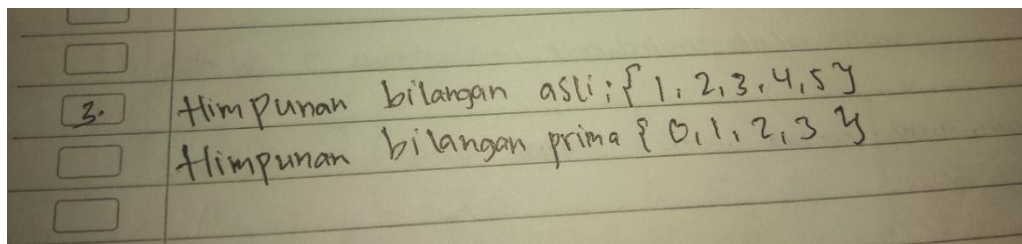 3. Himpunan bilangan asli : { 1, 2, 3, 4, 5 }
Himpunan bilangan prima { 0, 1, 2, 3 }